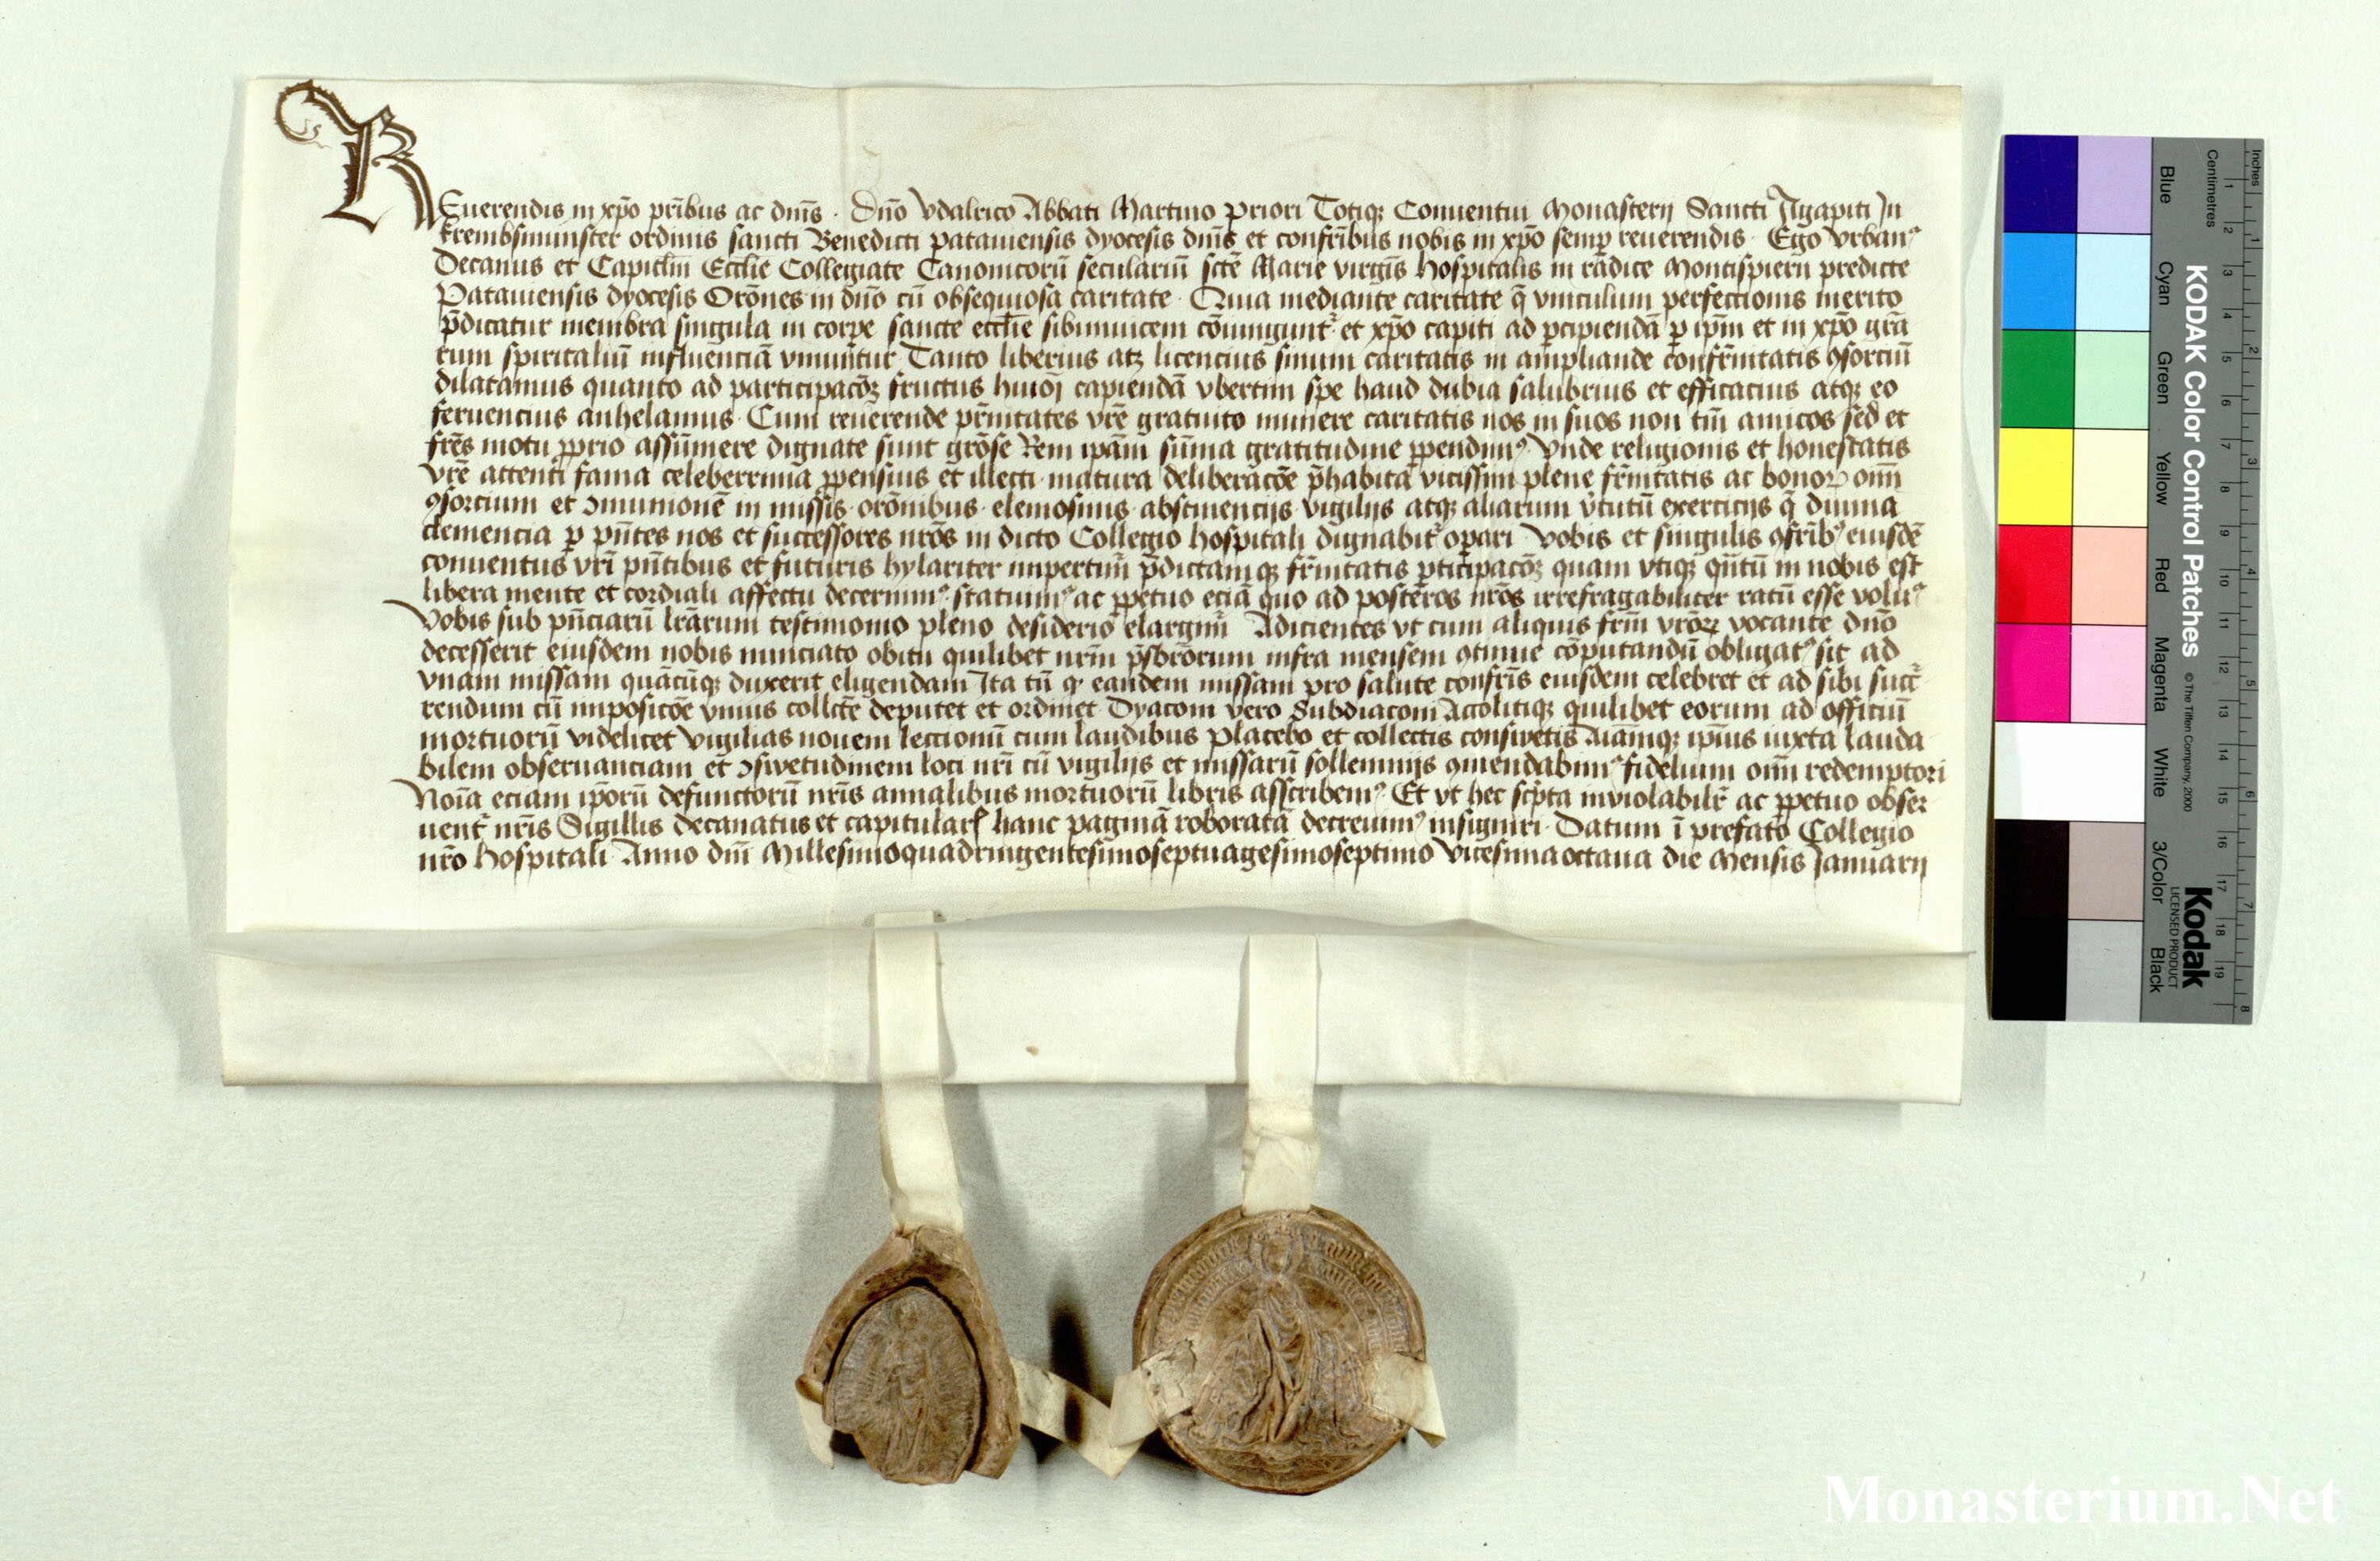 REuerendis in xp̄o pr̄ibus ac dn̄is · Dn̄o Vdalrico Abbati Martino Priori Totiqꝫ Conuentui Monasterij Sancti Agapiti In
krembsmunster ordinis sancti Benedicti patauiensis dyocesis dn̄is et confr̄ibus nobis in xp̄o semp̱ reuerendis · Ego Vrbanꝰ
Decanus et Capitl̄m Eccl̄ie Collegiate Canonicorū seculariū sc̄te Marie virgīs hospitalis in radice Montispierū predicte
Patauiensis dyocesis Or̄ones in dn̄o cū obsequiosa caritate · Quia mediante caritate q̄ vinculum perfectionis merito
p̄dicatur membra singula in corpe sancte eccl̄ie sibiinuicem cōiungunt᷑ et xp̄o capiti ad ꝑcipiendā ꝑ ip̄m et in xp̄o grā
rum spiritaliū influenciā vniuntur Tanto liberius atꝫ licencius sinum caritatis in ampliande confr̄nitatis ꝯsorciū
dilatamus quanto ad participacōꝫ fructus huiōj capiendā vbertim spe haud dubia salubrius et efficacius atqꝫ eo
feruencius anhelamus · Cum reuerende pr̄nitates vr̄e gratuito munere caritatis nos in suos non tm̄ amicos sed et
fr̄es motu ꝓprio assūmere dignate sunt grōse Rem ip̄am sūma gratitudine ꝑpendimꝰ Vnde religionis et honestatis
vr̄e attenti fama celeberrima ꝓpensius et illecti matura deliberacōe p̄habita vicissim plene fr̄nitatis ac bonoꝝ om̄
ꝯsorcium et ꝯmunionē in missis · or̄onibus · elemosinis · abstinencijs · vigilijs atqꝫ aliarum v̓tutū exercicijs q̄ diuina
clemencia ꝑ pn̄tes nos et successores nr̄os in dicto Collegio hospitali dignabit᷑ opari · Vobis et singulis ꝯfr̄ibꝰ eiusdē
conuentus vr̄i pn̄tibus et futuris hylariter impertim᷑ p̄dictamqꝫ fr̄nitatis ꝑticipacōꝫ quam vtiqꝫ qn̄tū in nobis est
libera mente et cordiali affectu decernimꝰ statuimꝰ ac ꝑpetuo eciā quo ad posteros nr̄os irrefragabiliter ratū esse volumꝰ
Vobis sub pn̄ciarū lr̄arum testimonio pleno desiderio elargim᷑ Adicientes vt cum aliquis fr̄m vr̄oꝝ vocante dn̄o
decesserit eiusdem nobis nunciato obitu quilibet nr̄m p̄sbr̄orum infra mensem ꝯtinue cōputandū obligatꝰ sit ad
vnam missam quācūqꝫ duxerit eligendam Ita tn̄ ꝙ eandem missam pro salute confr̄is eiusdem celebret et ad sibi succr᷑
rendum cū imposicōe vnius coll̄cte deputet et ordinet Dyaconi vero Subdiaconi Accolitiqꝫ quilibet eorum ad officiū
mortuorū videlicet vigilias nouem lectionū cum laudibus Placebo et collectis consuetis Aiāmqꝫ ip̄ius iuxta lauda
bilem obseruanciam et ꝯsuetudinem loci nr̄i cū vigilijs et missarū sollemnijs ꝯmendabimꝰ fidelium om̄ redemptori
Noīa eciam ip̄orū defunctorū nr̄is annalibus mortuorū libris asscribemꝰ Et vt hec scp̄ta inviolabilr̄ ac ꝑpetuo obser
uent᷑ nr̄is Sigillis decanatus et capitulari hanc paginā roboratā decreuimꝰ insigniri · Datum ī prefato Collegio
nr̄o hospitali Anno dn̄i Millesimoquadringentesimoseptuagesimoseptimo Vicesimaoctaua die Mensis Januarij
KODAK Color Control Patches © The Tiffen Company, 2000
Kodak
LICENSED PRODUCT
Blue Cyan Green Yellow Red Magenta White 3/Color Black
Inches 1 2 3 4 5 6 7 8
Centimetres 1 2 3 4 5 6 7 8 9 10 11 12 13 14 15 16 17 18 19
Monasterium.Net